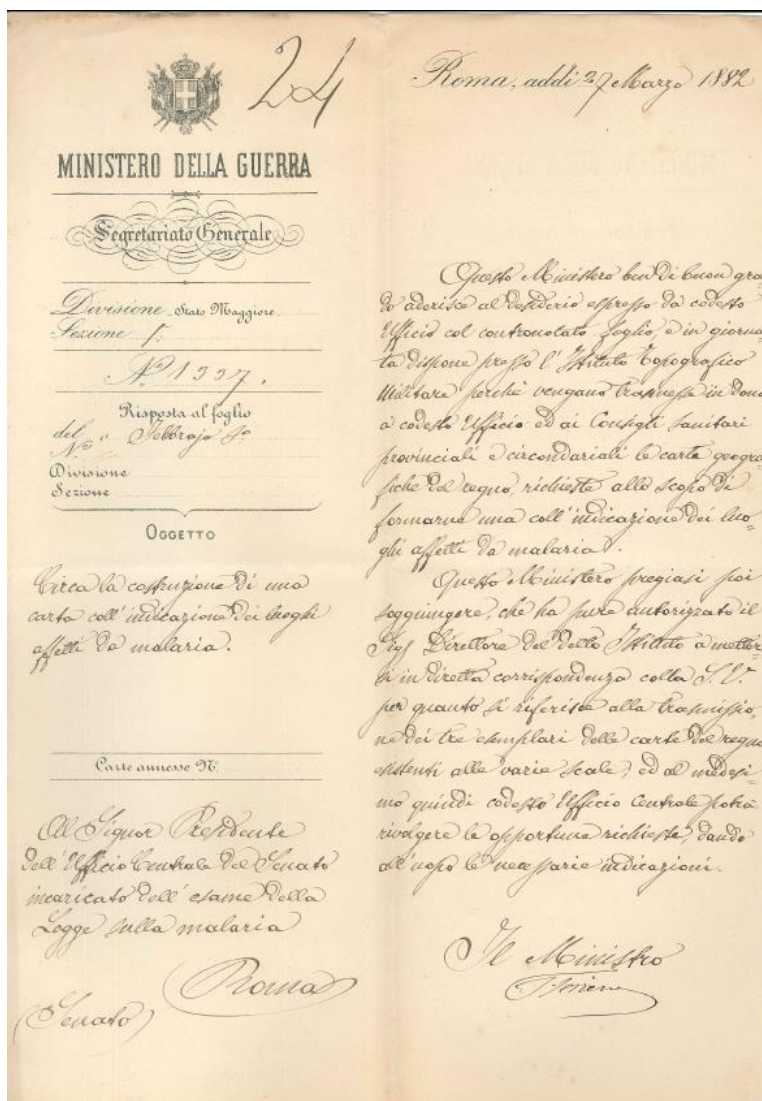 24
MINISTERO DELLA GUERRA
Segretariato Generale
Divisione Stato Maggiore.
Sezione 1ª
N.º 1337.
Risposta al foglio
del Febbrajo
N.º
Divisione
Sezione
OGGETTO
Circa la costruzione di una
carta coll'indicazione dei luoghi
affetti da malaria.
Carte annesse N.
Al Signor Presidente
dell'Ufficio Centrale del Senato
incaricato dell'esame della
Legge sulla malaria
Roma
(Senato)
Roma, addì 27 Marzo 1882
Questo Ministero ben di buon gra-
do aderisce al desiderio espresso da codesto
Ufficio col controcitato foglio, e in giorna-
ta dispone presso l'Istituto Topografico
Militare perchè vengano trasmesse in dono
a codesto Ufficio ed ai Consigli sanitari
provinciali e circondariali le carte geogra-
fiche del regno, richieste allo scopo di
formarne una coll'indicazione dei luo-
ghi affetti da malaria.
Questo Ministero pregiasi poi
soggiungere, che ha pure autorizzato il
Sig. Direttore del detto Istituto a metter-
si in diretta corrispondenza colla S.V.
per quanto si riferisce alla trasmissio-
ne dei tre esemplari delle carte del regno
esistenti alle varie scale; ed al medesi-
mo quindi codesto Ufficio Centrale potrà
rivolgere le opportune richieste, dando
all'uopo le necessarie indicazioni.
Il Ministro